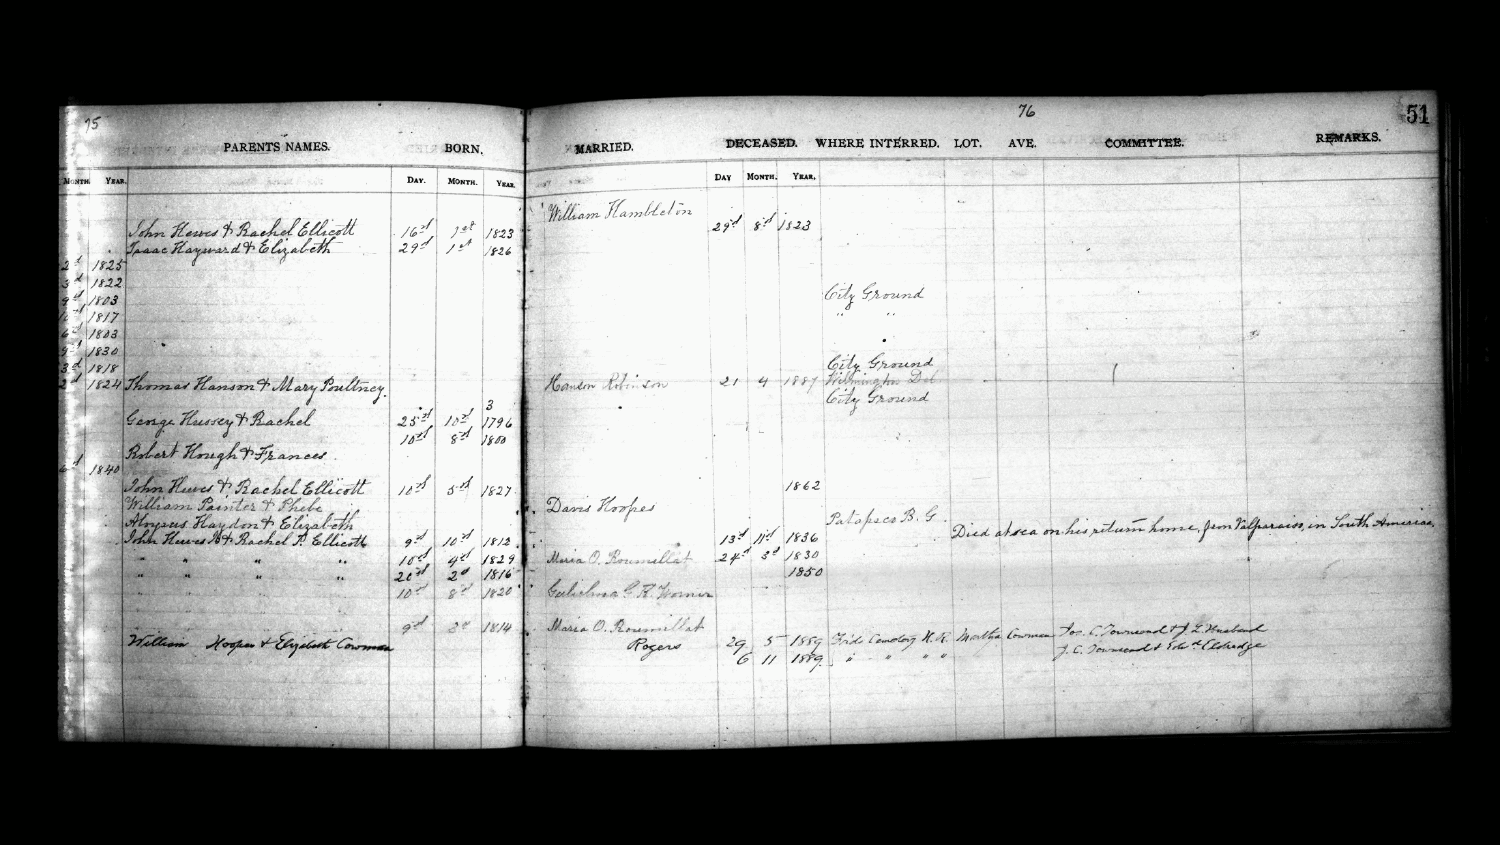 75
76
51
PARENTS NAMES. BORN. MARRIED. DECEASED. WHERE INTERRED. LOT. AVE. COMMITTEE. REMARKS.
MONTH. YEAR. DAY. MONTH. YEAR. DAY MONTH. YEAR.
William Hambleton
29d 8d 1823
John Hewes & Rachel Ellicott 16d 1st 1823
Isaac Hayward & Elizabeth 29d 1st 1826
2d 1825
3d 1822
9d 1803 City Ground
1817 " "
6d 1803
9d 1830
3d 1818 City Ground
2d 1824 Thomas Hanson & Mary Poultney. Hanson Robinson 21 4 1887 Wilmington Del
City Ground
3
George Hussey & Rachel 25d 10d 1796
10d 8d 1800
Robert Hough & Frances.
6d 1840
John Hewes & Rachel Ellicott 10d 5d 1827 1862
William Painter & Phebe Davis Hoopes
Aloysus Haydon & Elizabeth Patapsco B. G.
John Hewes & Rachel P. Ellicott 9d 10d 1812 13d 11d 1836 Died at sea on his return home, from Valparaiso, in South America,
" " " " 10d 4d 1829 Maria O. Roumillat 24d 3d 1830
" " " " 20d 2d 1816 1850
10d 8d 1820 Gulielma G. R. Worner
9d 2d 1814 Maria O. Roumillat
William Hooper & Elizabeth Cowman Rogers 29 5 1889 Frids Cemetery H. R. Martha Cowman Jos. C. Townsend & J. L. Husband
6 11 1889. " " " " J. C. Townsend & Edwd Eldredge